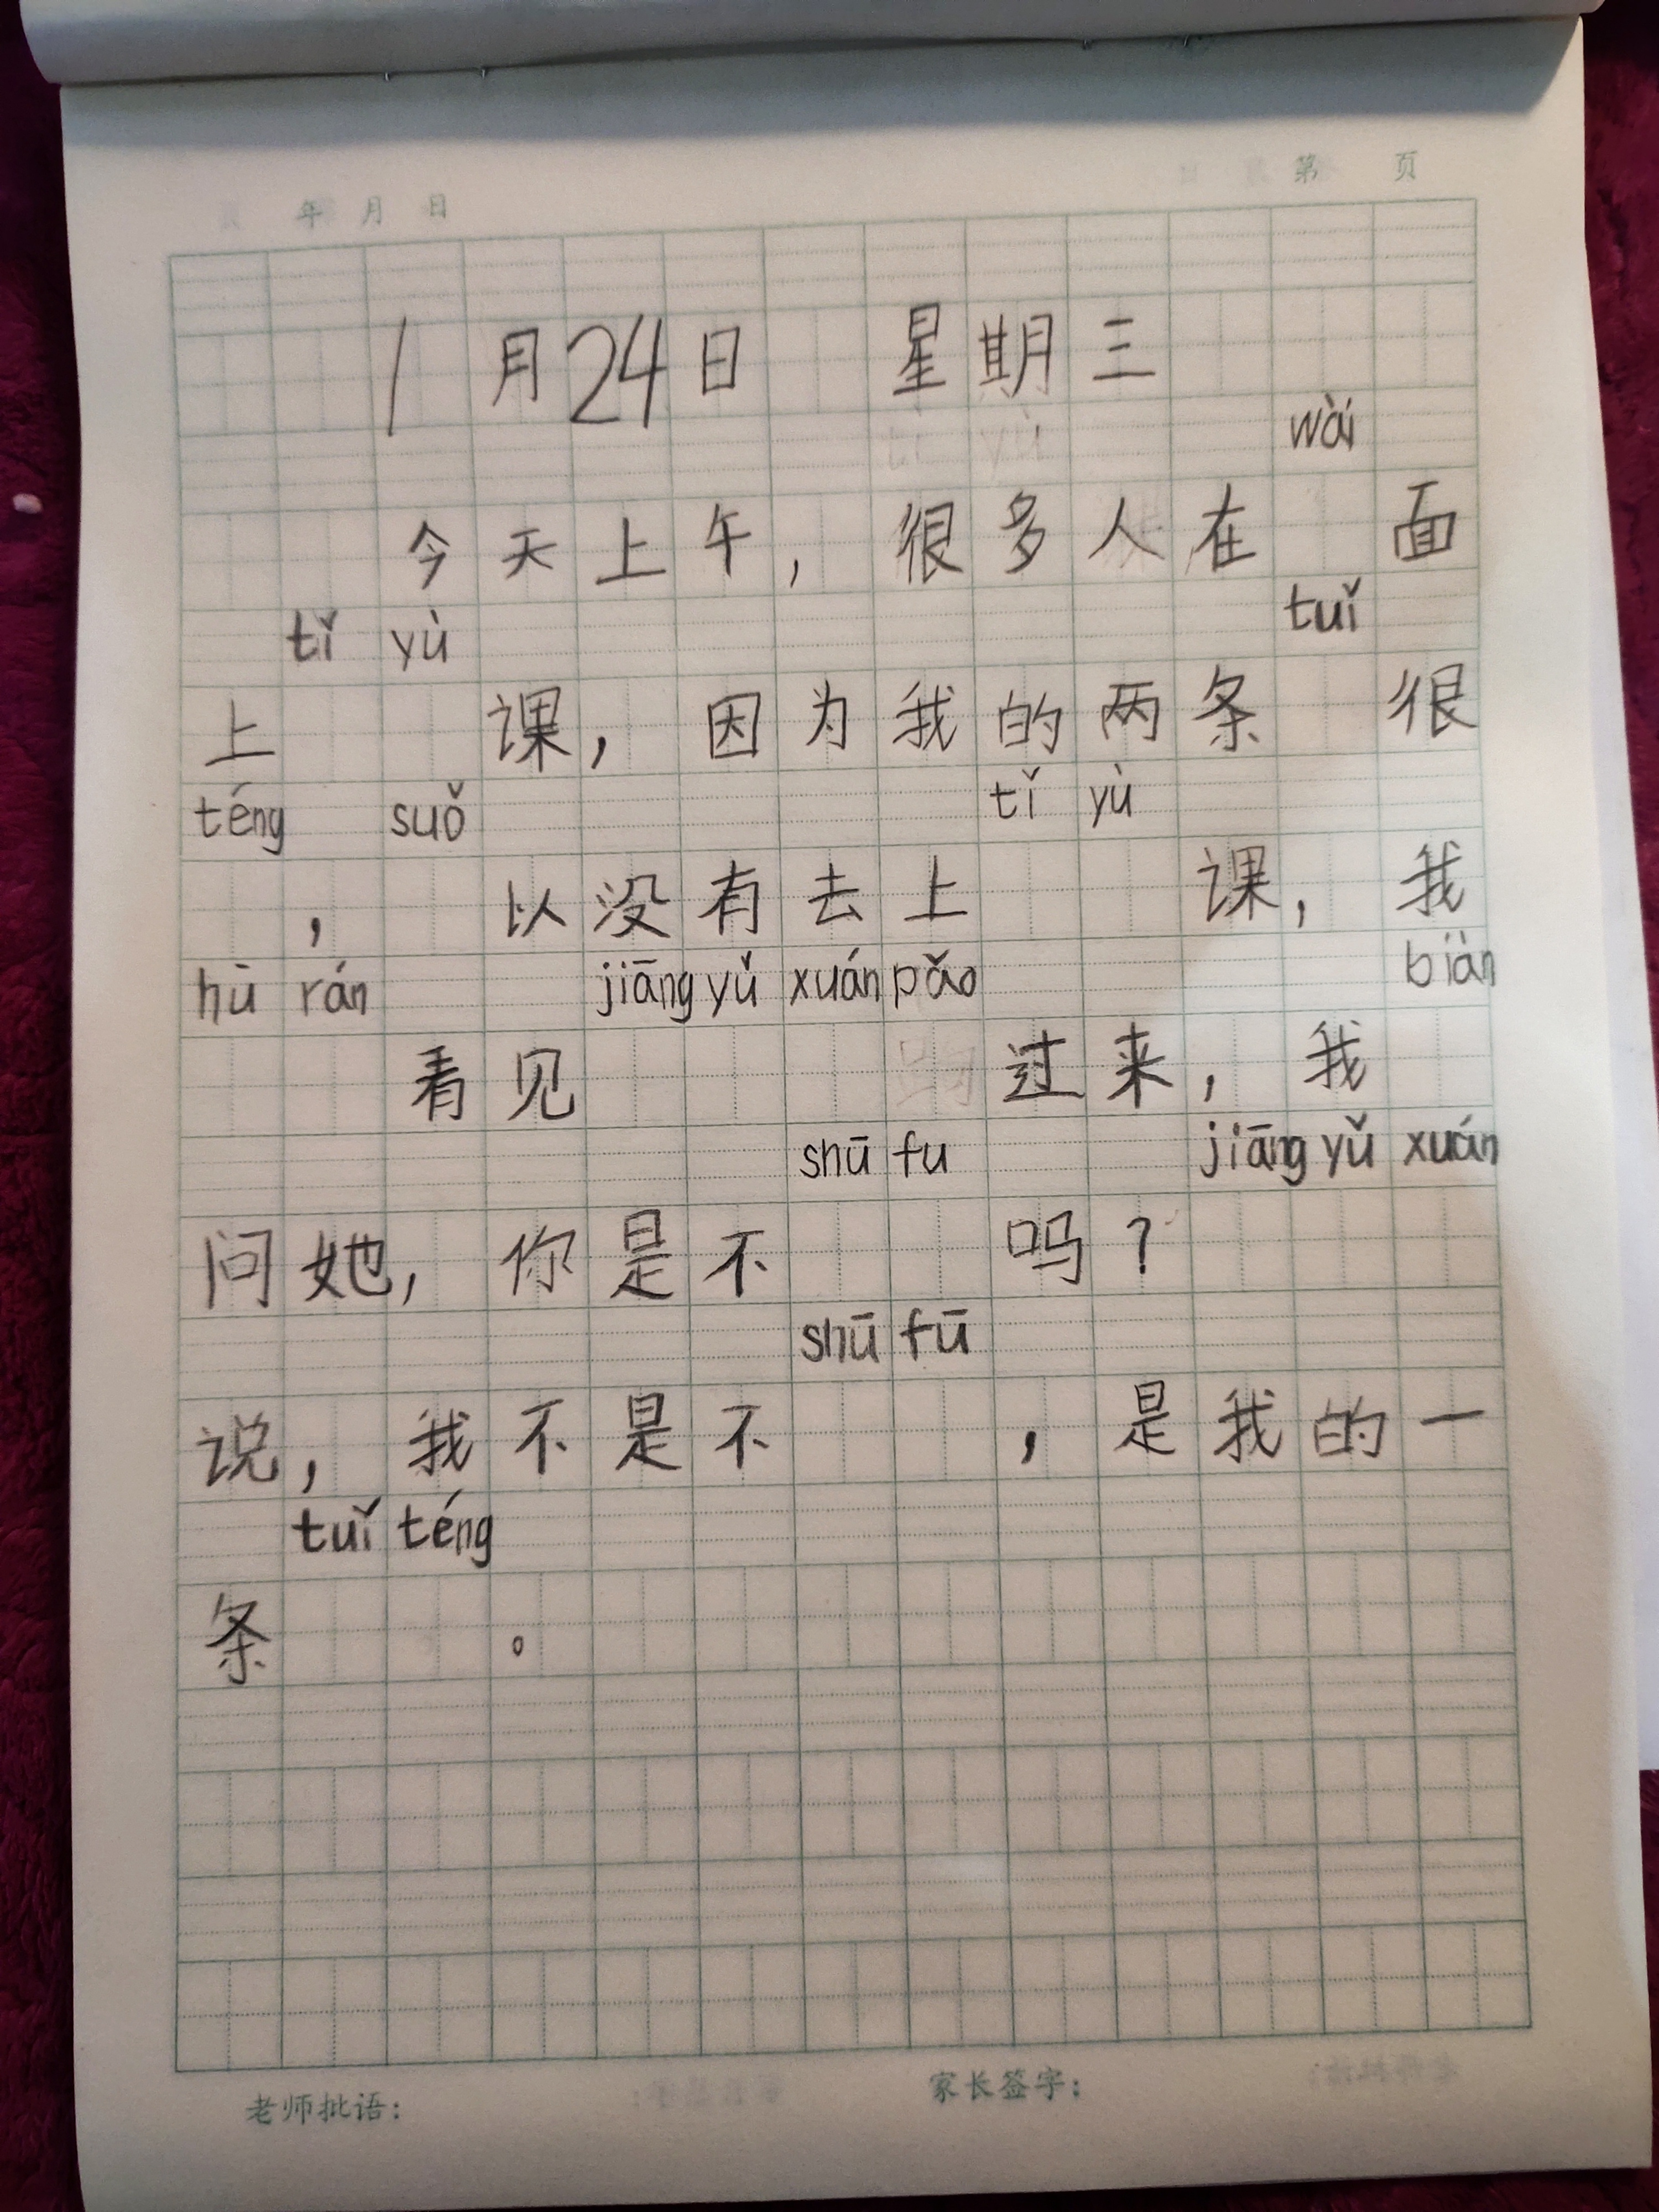 年 月 日 第 页
1月24日 星期三
wài
今天上午，很多人在 面
tǐ yù tuǐ
上 课，因为我的两条 很
téng suǒ tǐ yù
， 以没有去上 课，我
hū rán jiāng yǔ xuán pǎo biàn
看见 过来，我
shū fu jiāng yǔ xuán
问她，你是不 吗？
shū fū
说，我不是不 ，是我的一
tuǐ téng
条 。
老师批语： 家长签字：